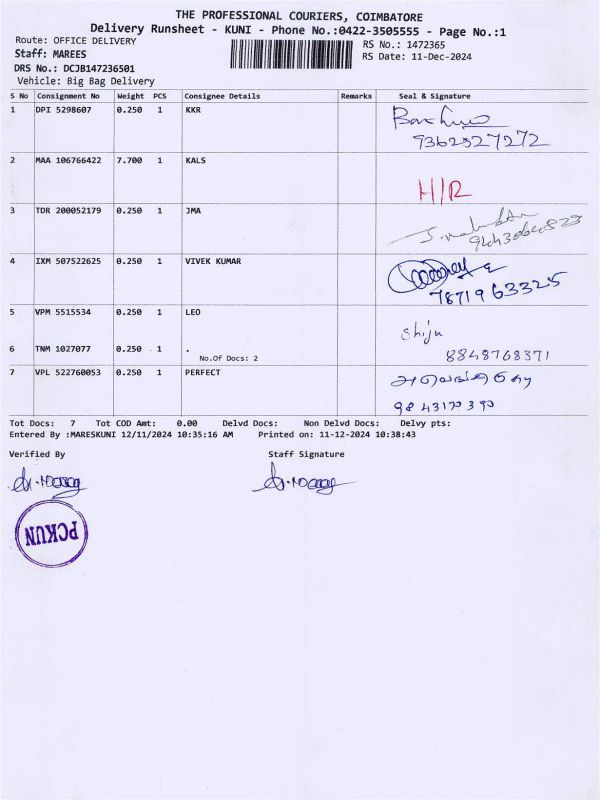 THE PROFESSIONAL COURIERS, COIMBATORE
Delivery Runsheet - KUNI - Phone No.:0422-3505555 - Page No.:1
Route: OFFICE DELIVERY
RS No.: 1472365
Staff: MAREES
RS Date: 11-Dec-2024
DRS No.: DCJB147236501
Vehicle: Big Bag Delivery
S No Consignment No Weight PCS Consignee Details Remarks Seal & Signature
1 DPI 5298607 0.250 1 KKR
9362527272
2 MAA 106766422 7.700 1 KALS
H/R
3 TDR 200052179 0.250 1 JMA
4 IXM 507522625 0.250 1 VIVEK KUMAR
7871963325
5 VPM 5515534 0.250 1 LEO
Shiju
6 TNM 1027077 0.250 1 .
No.Of Docs: 2
8848768371
7 VPL 522760053 0.250 1 PERFECT
Tot Docs: 7 Tot COD Amt: 0.00 Delvd Docs: Non Delvd Docs: Delvy pts:
Entered By :MARESKUNI 12/11/2024 10:35:16 AM Printed on: 11-12-2024 10:38:43
Verified By Staff Signature
PCKUN